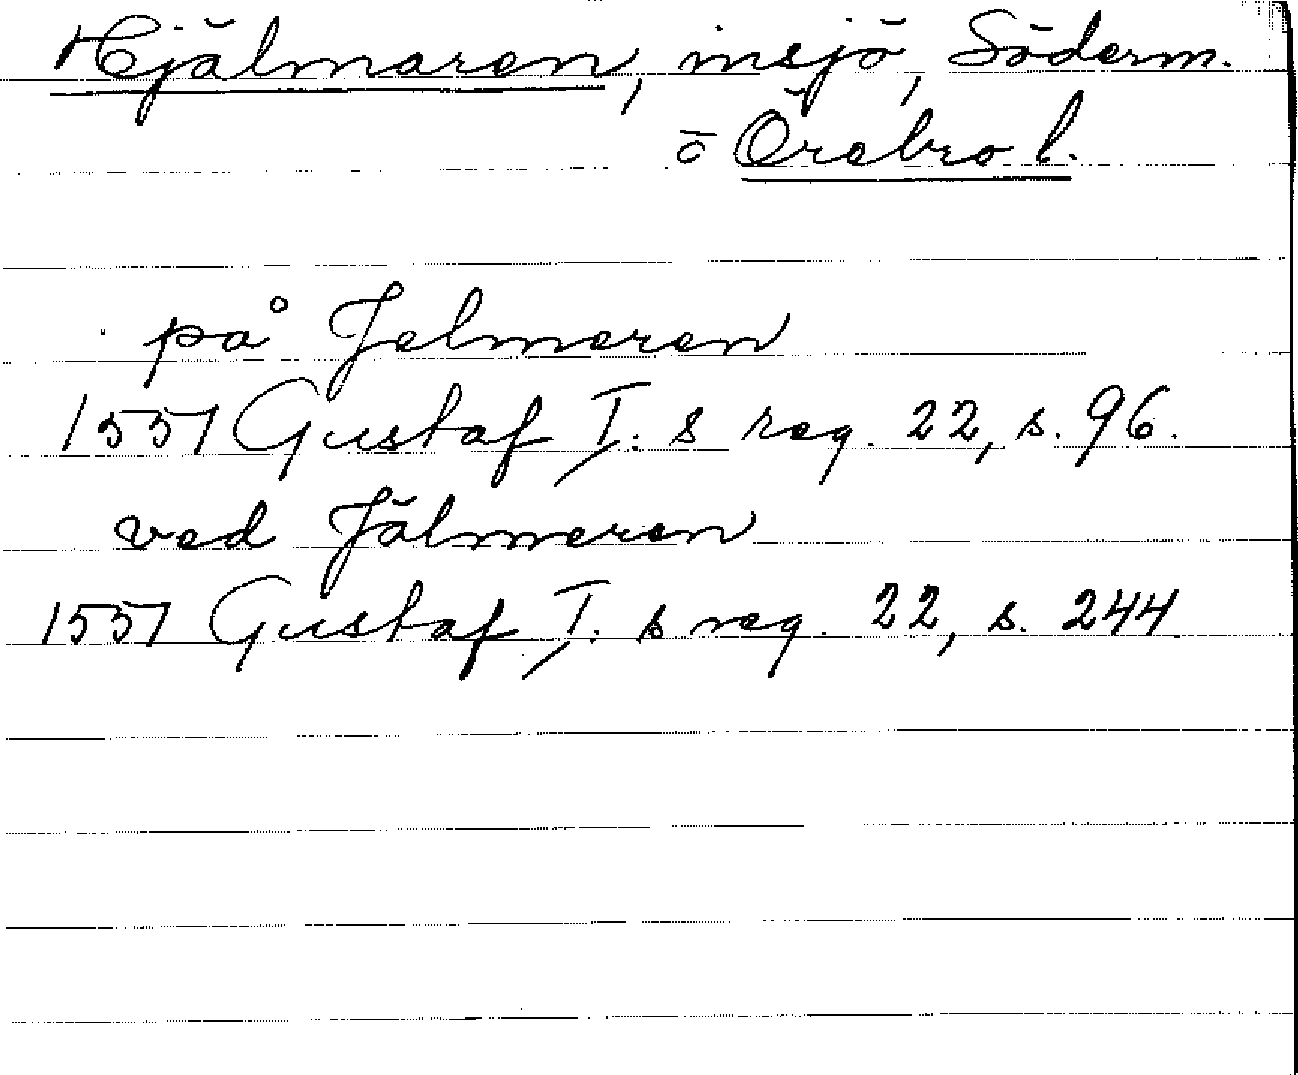 Hjälmaren, insjö, Söderm.
o Örebro l.
på Jelmeren
1557 Gustaf I. s reg. 22, s. 96.
ved Jälmeren
1557 Gustaf I. s reg. 22, s. 244